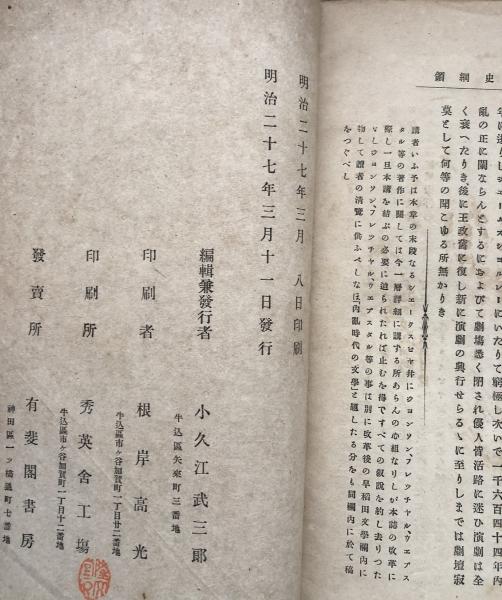 史綱領
亂の正に闌ならんとするにおよびて劇塲悉く閉され優人皆活路に迷ひ演劇は全
く衰へたりき、後に王政舊に復し新に演劇の興行せらるゝに至りしまでは劇壇寂
莫として何等の聞こゆる所無かりき
講者いふ予は本章の末段なるシェークスピヤ并にジョンソン、フレッチャル、ウェブス
タル等の著作に關しては今一層詳細に講する所あらんの心組なりしが本誌の改革に
際し一旦本講を結ぶの必要に迫られたれば止むを得ずすべての叙說を約し去りつた
なしジョンソン、フレッチャル、ウェブスタル等の事は別に改革後の早稻田文學欄內に
物して讀者の清覽に供ふべしなほ「內亂時代の文學」と題したる分をも同欄內に於て稿
をつぐべし
明治二十七年三月八日印刷
明治二十七年三月十一日發行
編輯兼發行者
小久江武三郞
牛込區矢來町三番地
印刷者
根岸高光
牛込區市ヶ谷加賀町一丁目廿二番地
印刷所
秀英舍工塲
牛込區市ヶ谷加賀町一丁目十二番地
發賣所
有斐閣書房
神田區一ツ橋通町七番地